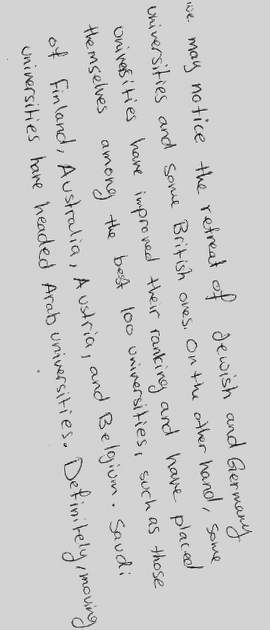 we may notice the retreat of Jewish and Germany
universities and some British ones. On the other hand, some
universities have improved their ranking and have placed
themselves among the best 100 universities, such as those
of Finland, Australia, Austria, and Belgium. Saudi
universities have headed Arab universities. Definitely, moving